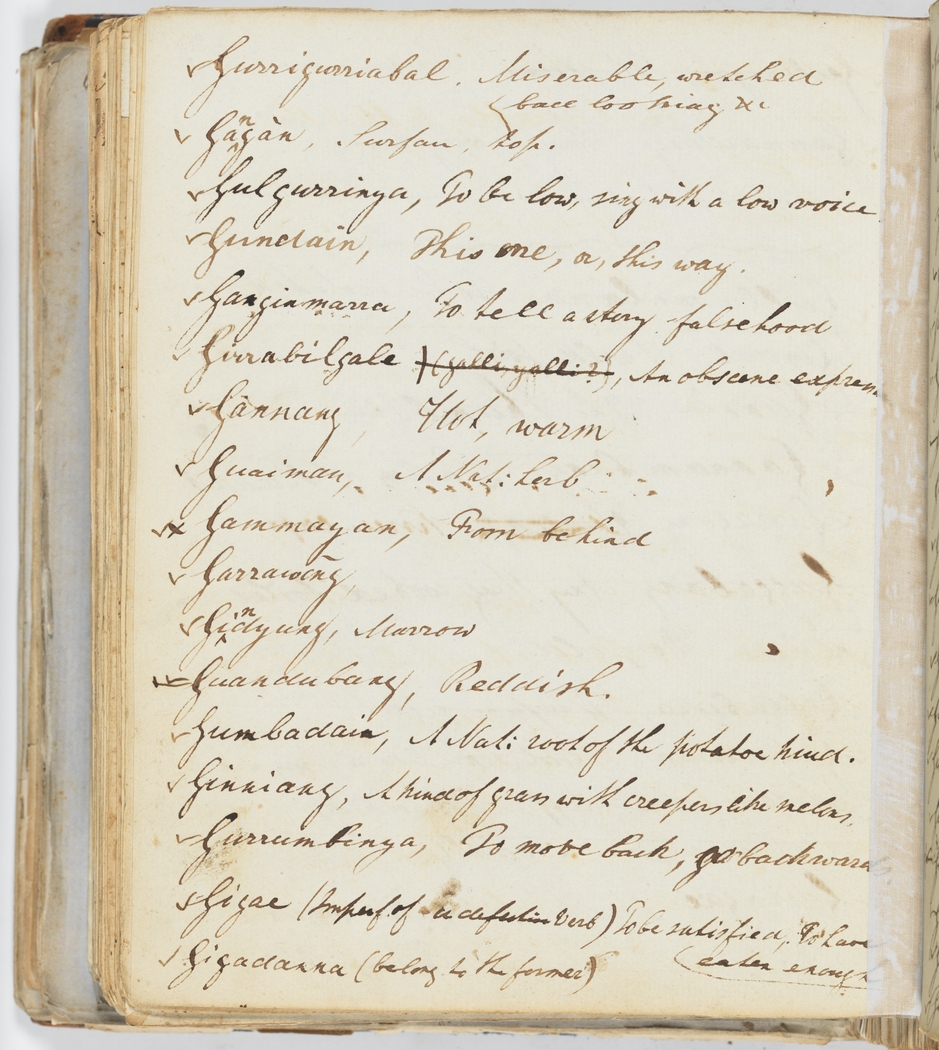 Gurrigurriabal. Miserable, wretched
(base looking &c
Gangàn, Surfau, top.
Gulgurringa, To be low, sing with a low voice
Gundain, This one, or, this way.
Ganginmarra, To tell a story falsehood
Girrabilgale (galli yalli?), An obscene express
Gànnang, Hot, warm
Guaiman, A Nat: herb
Gammayan, From behind
Garrawāng,
Gindyung, Marrow
Guandubang, Reddish.
Gumbadain, A Nat: root of the potatoe kind.
Ginniang, A kind of grass with creepers like melons.
Gurrumbinga, To move back, go backward
Gigae (Imperf of a defective Verb) To be satisfied, To have
(eaten enough
Gigadanna (belong to the former)